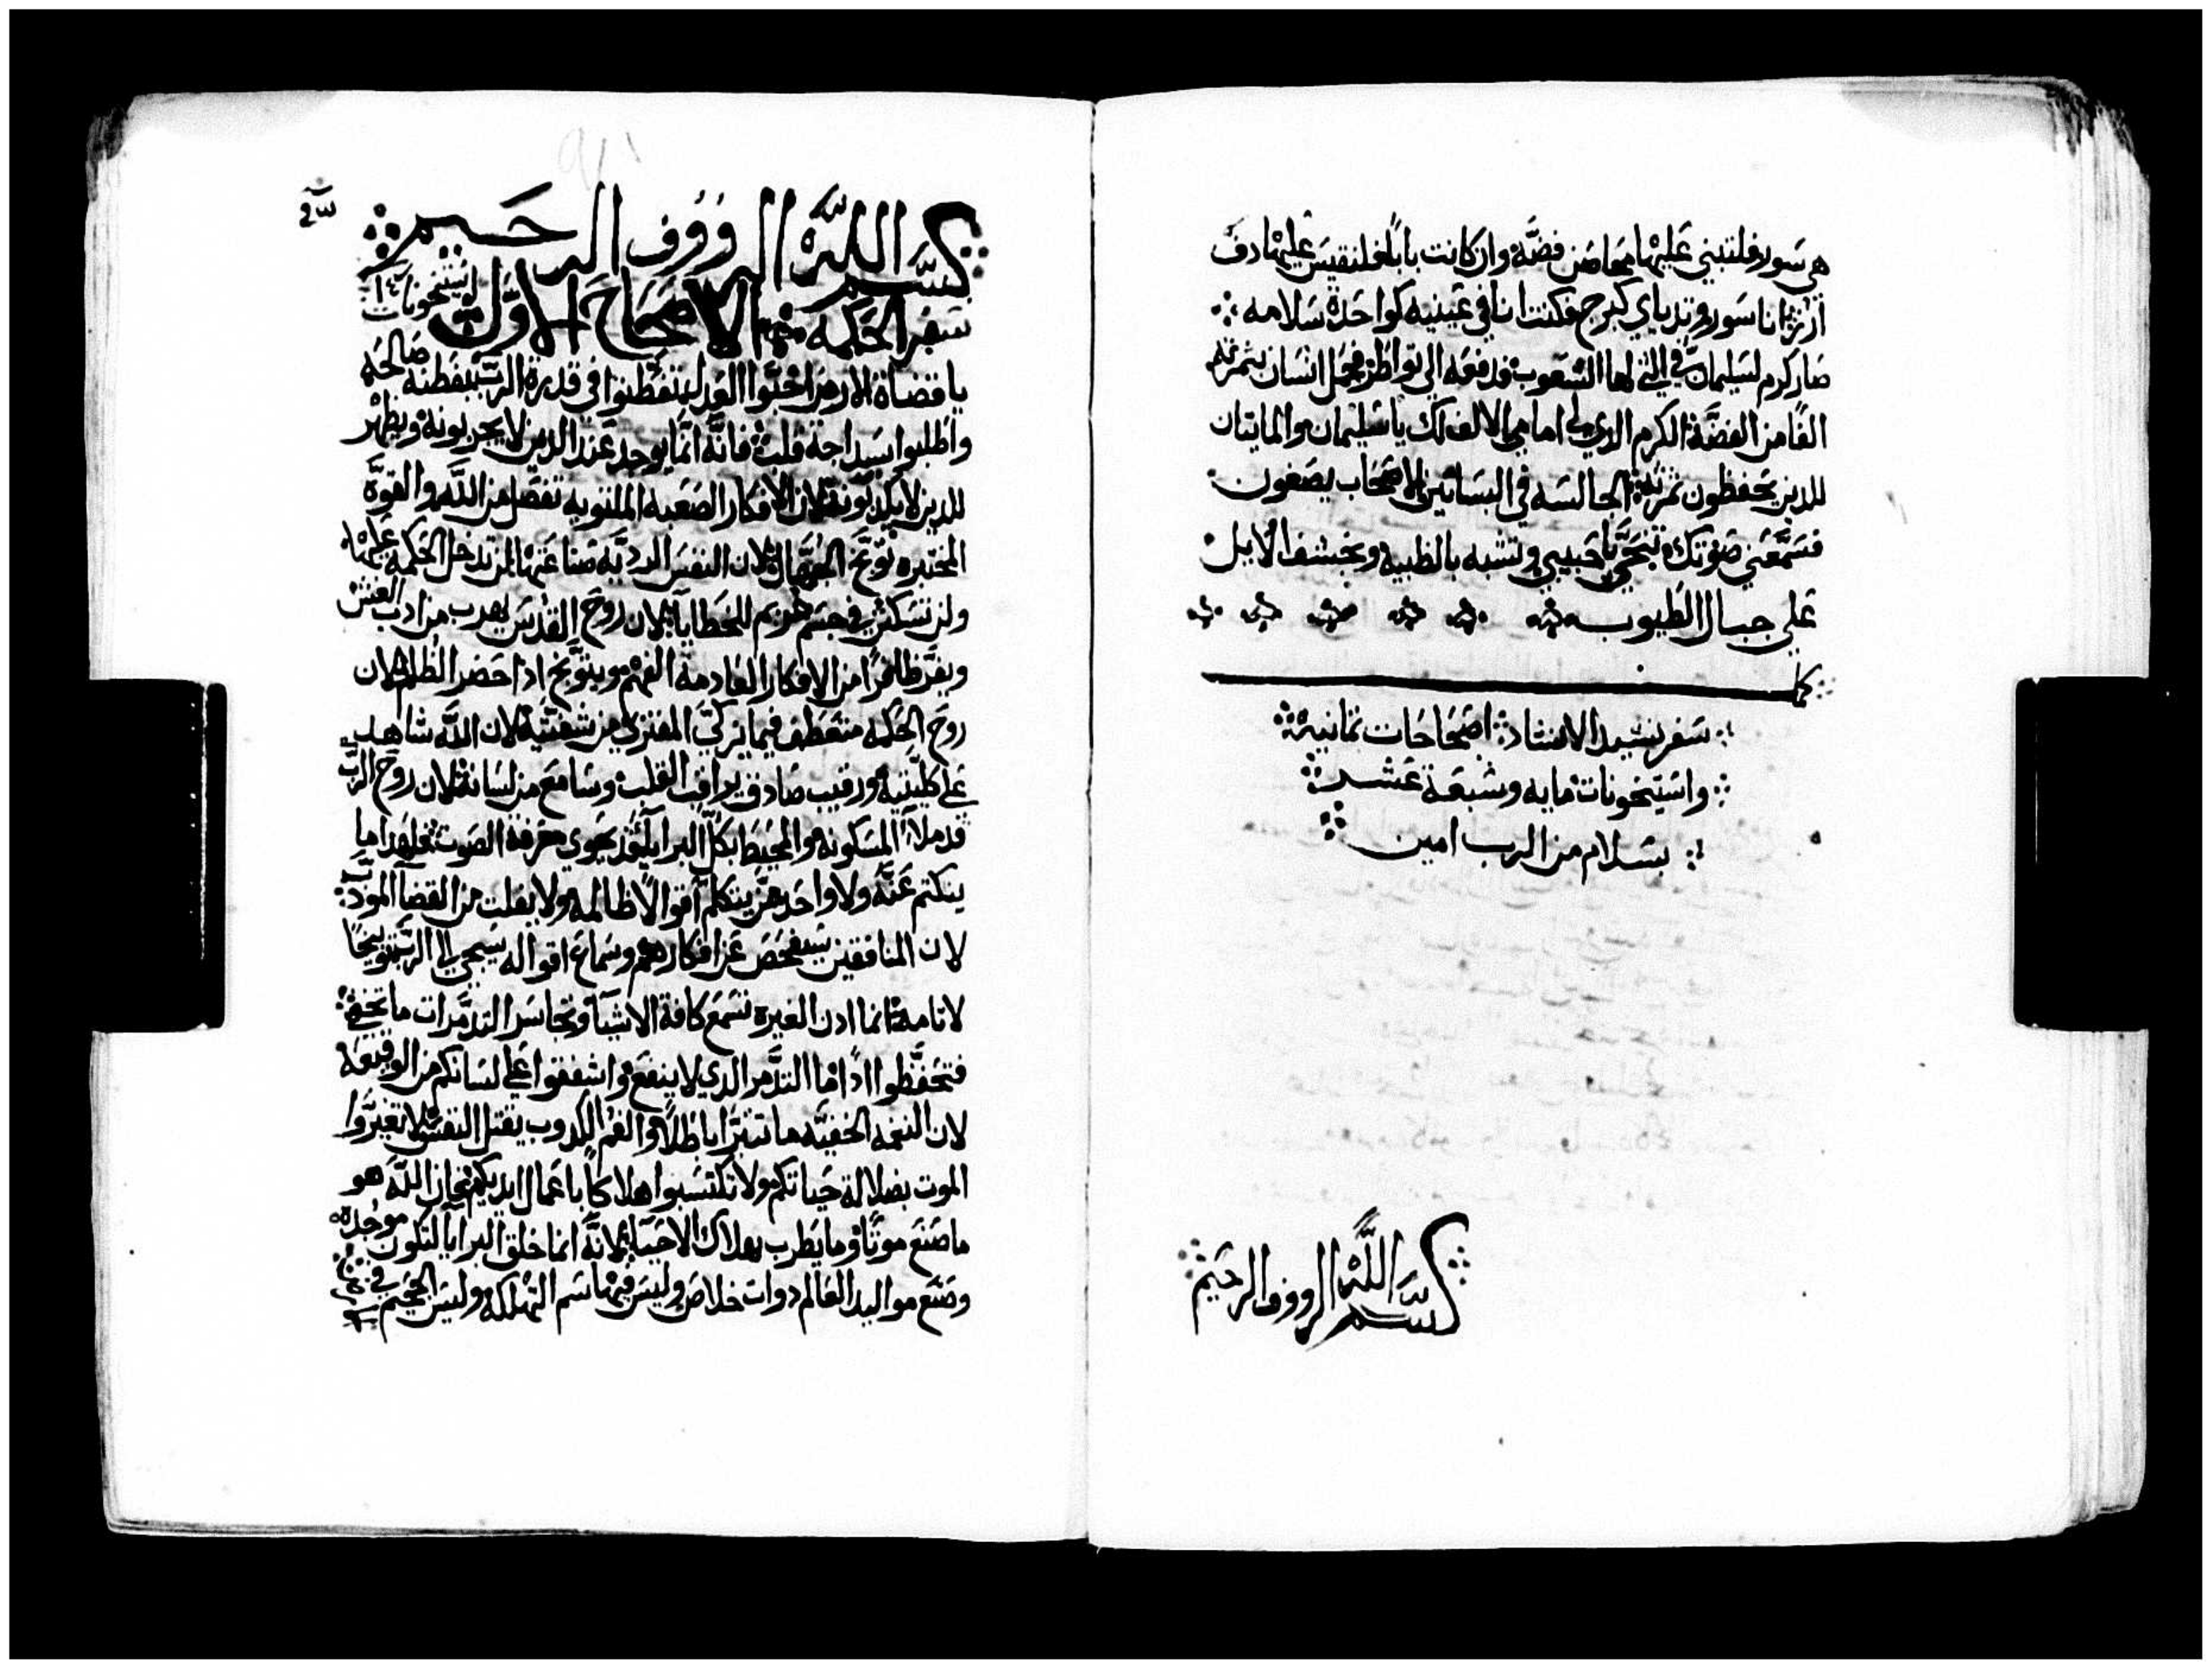 هي سور فلنبني عليها محاصن فضه وان كانت بابا فلنقيس عليها دف
ارز انا سور وتدياي كبرج فكنت انا في عينيه كواحدة سلامه
صار كرم لسليمان في التي لها الشعوب فدفعه الى نواطر فيحمل انسان بثمرته
الفا من الفضة الكرم الدي لي امامي الالف لك يا سليمان والمايتان
للدين يحفظون ثمرته الجالسه في البساتين الاصحاب يصغون
فسمعني صوتك تنحي يا حبيبي وتشبه بالظبيه وبخشف الايل
على جبال الطيوب
كمل
سفر نشيد الانشاد اصحاحات تمانيه
واستيخونات مايه وسبعة عشر
بسلام من الرب امين
بسم الله الرووف الرحيم
بسم الله الرووف الرحيم
سفر الحكمه الاصحاح الاول استيخونات
يا قضاة الارض احبوا العدل تفطنوا في قدرة الرب بفطنه صالحه
واطلبوا بسداجة قلب فانه انما يوجد عند الدين لا يجربونه ويظهر
للدين لا يكدبونه لان الافكار الصعبه الملتويه تفصل من الله والقوة
المختبره توبخ الجهال لان النفس الرديه صناعتها لن تدخل الحكمه عليها
ولن تسكن في جسم غريم للخطايا لان روح القدس يهرب من ادب الغش
ويفر ظافرا من الافكار العادمة الفهم ويتوبخ ادا حضر الظلم لان
روح الحكمه متعطف فما يزكي المفتري من شفتيه لان الله شاهد
على كليتيه ورقيب صادق يراقب القلب وسامع من لسانه لان روح الرب
قد ملا المسكونه والمحيط بكل البرايا يحوي معرفة الصوت فلهدا ما
ينكتم عنه ولا واحد ممن يتكلم اقوالا ظالمه ولا يفلت من القضا المودب
لان المنافقين سيفحص عن افكارهم وسماع اقواله سيجي الى الرب توبيخا
لاتامه انما ادن الغيره تسمع كافة الاشيا وتجاسر التدمرات ما تخفي
فتحفظوا ادا من التدمر الدي لا ينفع واشفقوا على لسانكم من الوقيعه
لان النغمه الخفيه ما تنبرا باطلا والفم الكدوب يقتل النفس لا تغيروا
الموت بضلالة حياتكم ولا تكتسبوا هلاكا باعمال ايديكم فان الله هو
ما صنع موتا وما يطرب بهلاك الاحيا لانه انما خلق البرايا لتكون موجده
وصنع مواليد العالم دوات خلاص وليس فيها سم التهلكه وليس الجحيم في